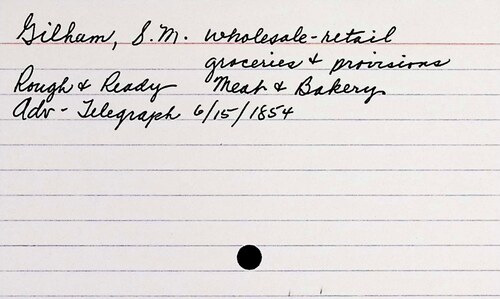 Gilham, S.M. wholesale-retail
groceries & provisions
Rough & Ready Meat & Bakery
Adv - Telegraph 6/15/1854